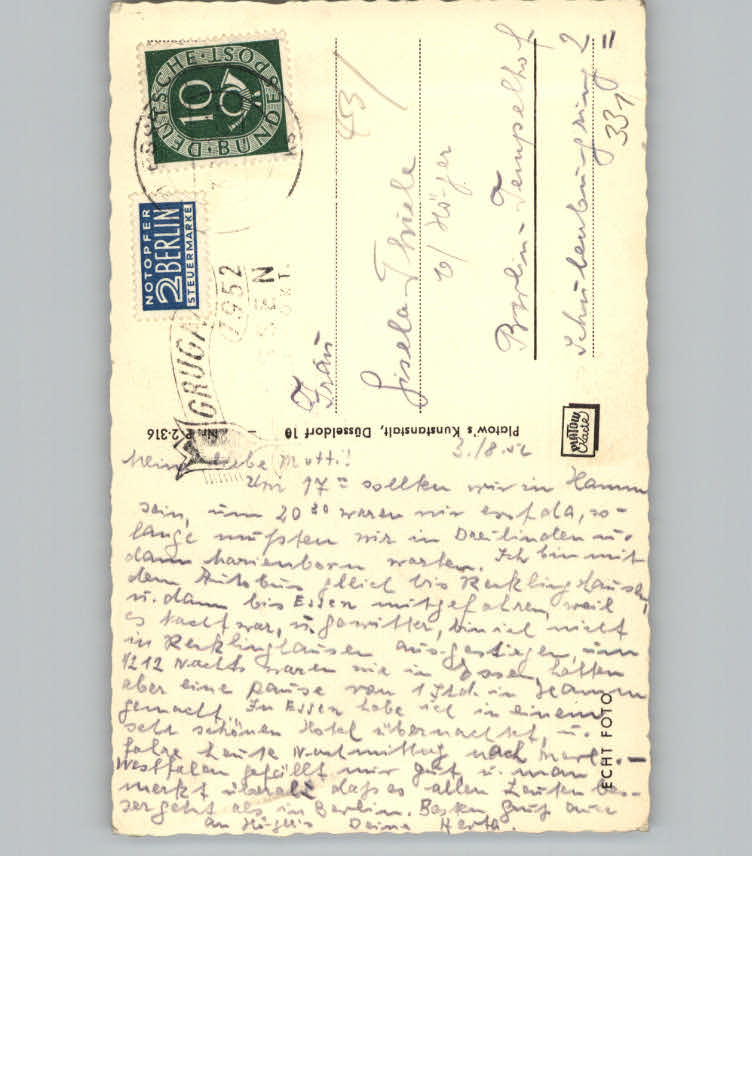 DEUTSCHE BUNDESPOST
10
NOTOPFER
2 BERLIN
STEUERMARKE
GRUGA
1952
ESSEN
Frau
Gisela Thiele
b/ Höger
Berlin-Tempelhof
Schulenburgring 2
331
Platow's Kunstanstalt, Düsseldorf 10 – Nr. P 2-316
PLATOW
Karte
ECHT FOTO
3./8.52
Meine liebe Mutti!
Um 17 sollten wir in Hamm
sein, um 20 30 waren wir erst da, so-
lange mußten wir in Dreilinden u.
dann Marienborn warten. Ich bin mit
dem Autobus gleich bis Recklinghausen,
u. dann bis Essen mitgefahren, weil
es Nacht war, u. Gewitter, bin ich nicht
in Recklinghausen ausgestiegen, um
1/2 12 Nachts waren wir in Essen, hatten
aber eine Pause von 1 Std. in Hamm
gemacht. In Essen habe ich in einem
sehr schönen Hotel übernachtet, u.
fahre heute Nachmittag nach Marl. –
Westfalen gefällt mir gut u. man
merkt überall daß es allen Leuten bes-
ser geht als in Berlin. Besten Gruß auch
an Högers Deine Herta.